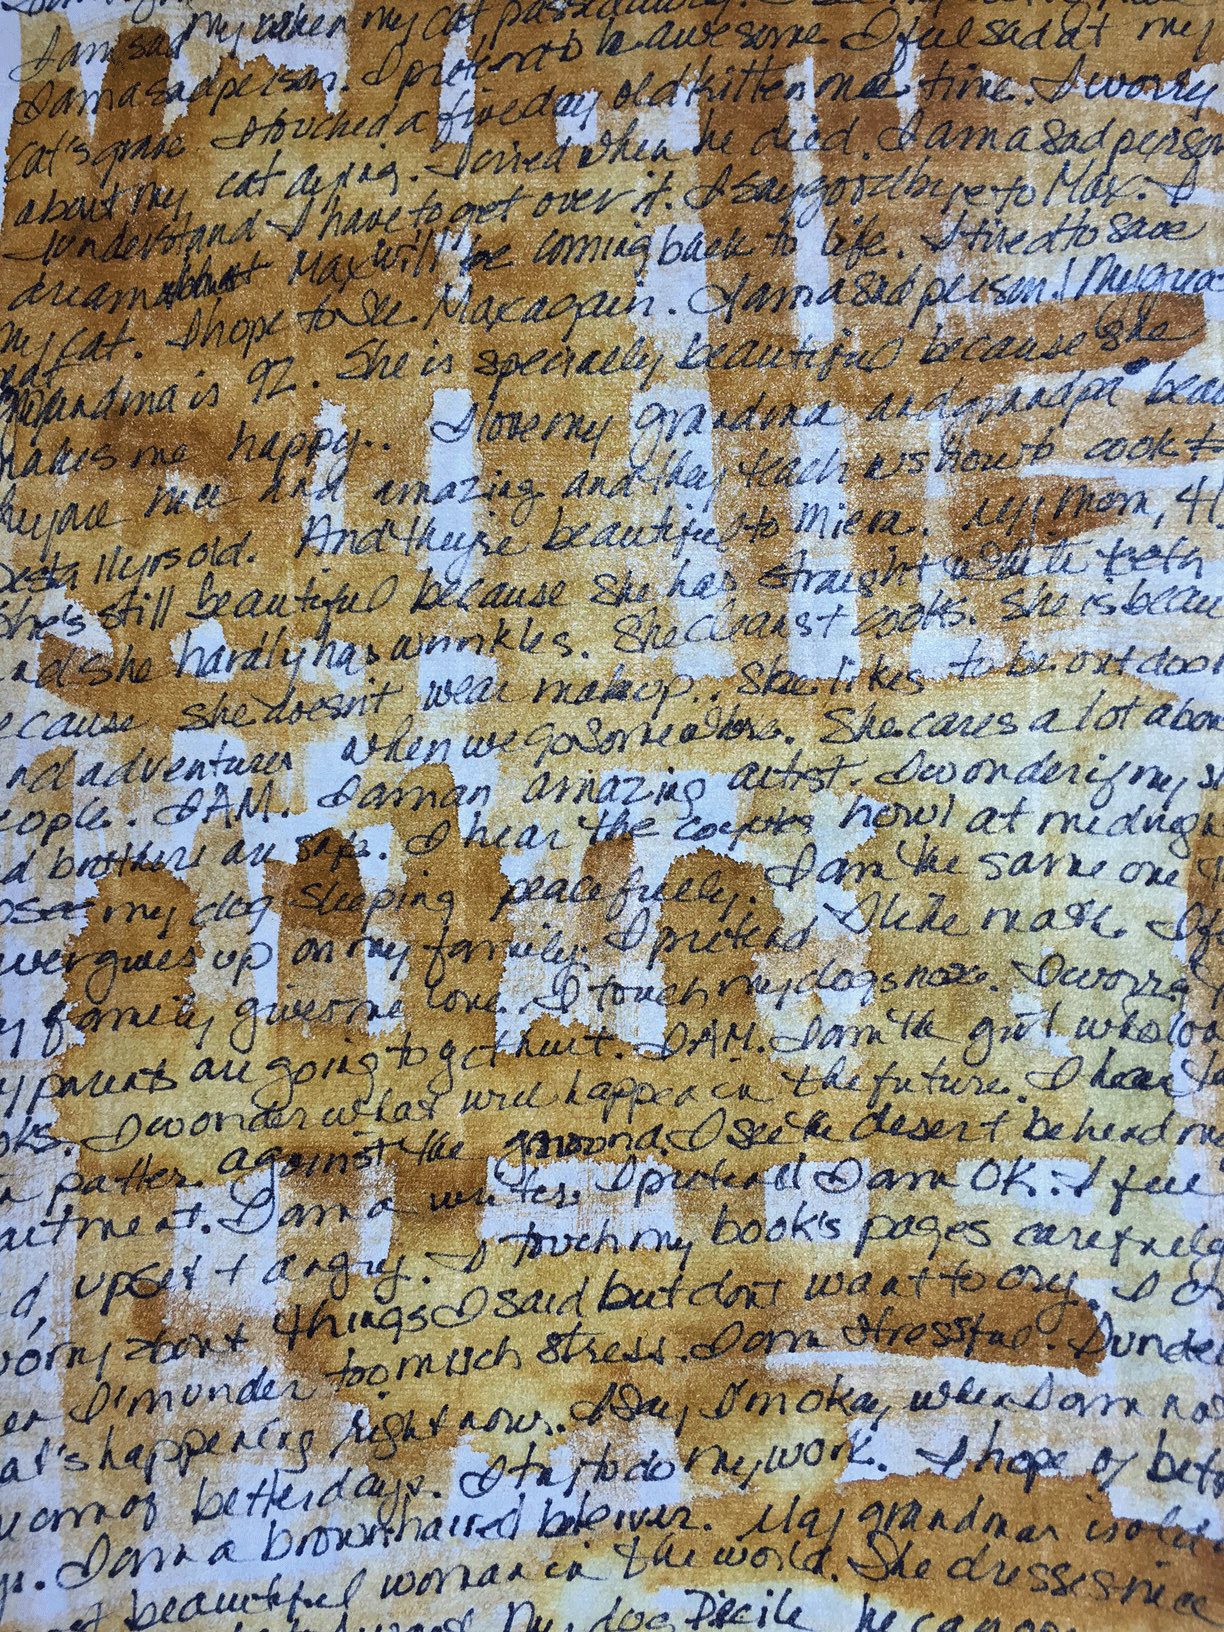 I am sad my when my cat passed away.
I am a sad person. I pretend to be awesome. I feel sad at my
cat's grave. I touched a five day old kitten one time. I worry
about my cat dying. I cried when he died. I am a sad person
I understand I have to get over it. I say goodbye to Max. I
dream that Max will be coming back to life. I tried to save
my cat. I hope to see Max again. I am a sad person! My great
grandma is 92. She is specially beautiful because she
makes me happy.. I love my grandma and grandpa
they are nice and amazing and they teach us how to cook
11yrs old. And they're beautiful to Miera. My Mom, 41,
She's still beautiful because she has straight white teeth
and she hardly has wrinkles. She cleans + cooks. She is
because she doesn't wear makeup.. She likes to be outdoor
and adventures when we go somewhere. She cares a lot about
people. I AM. I am an amazing artist. I wonder if my
d brothers are safe. I hear the coyotes howl at midnight
my dog sleeping peacefully. I am the same one
never gives up on my family. I pretend I like math. I
y family gives me love. I touch my dogs nose. I worry
my parents are going to get hurt. I AM. I am the girl who
oks. I wonder what will happen in the future. I hear
n patter against the ground. I see the desert behind
artment. I am a writer. I pretend I am OK. I feel
d, upset + angry. I touch my book's pages carefully
worry about things I said but don't want to cry. I
I'm under too much stress. I am stressful. I
at's happening right now. I say I'm okay when I am not
of better days. I try to do my work. I hope of
I am a brown haired believer. My grandma
st beautiful woman in the world. She dresses nice
My dog